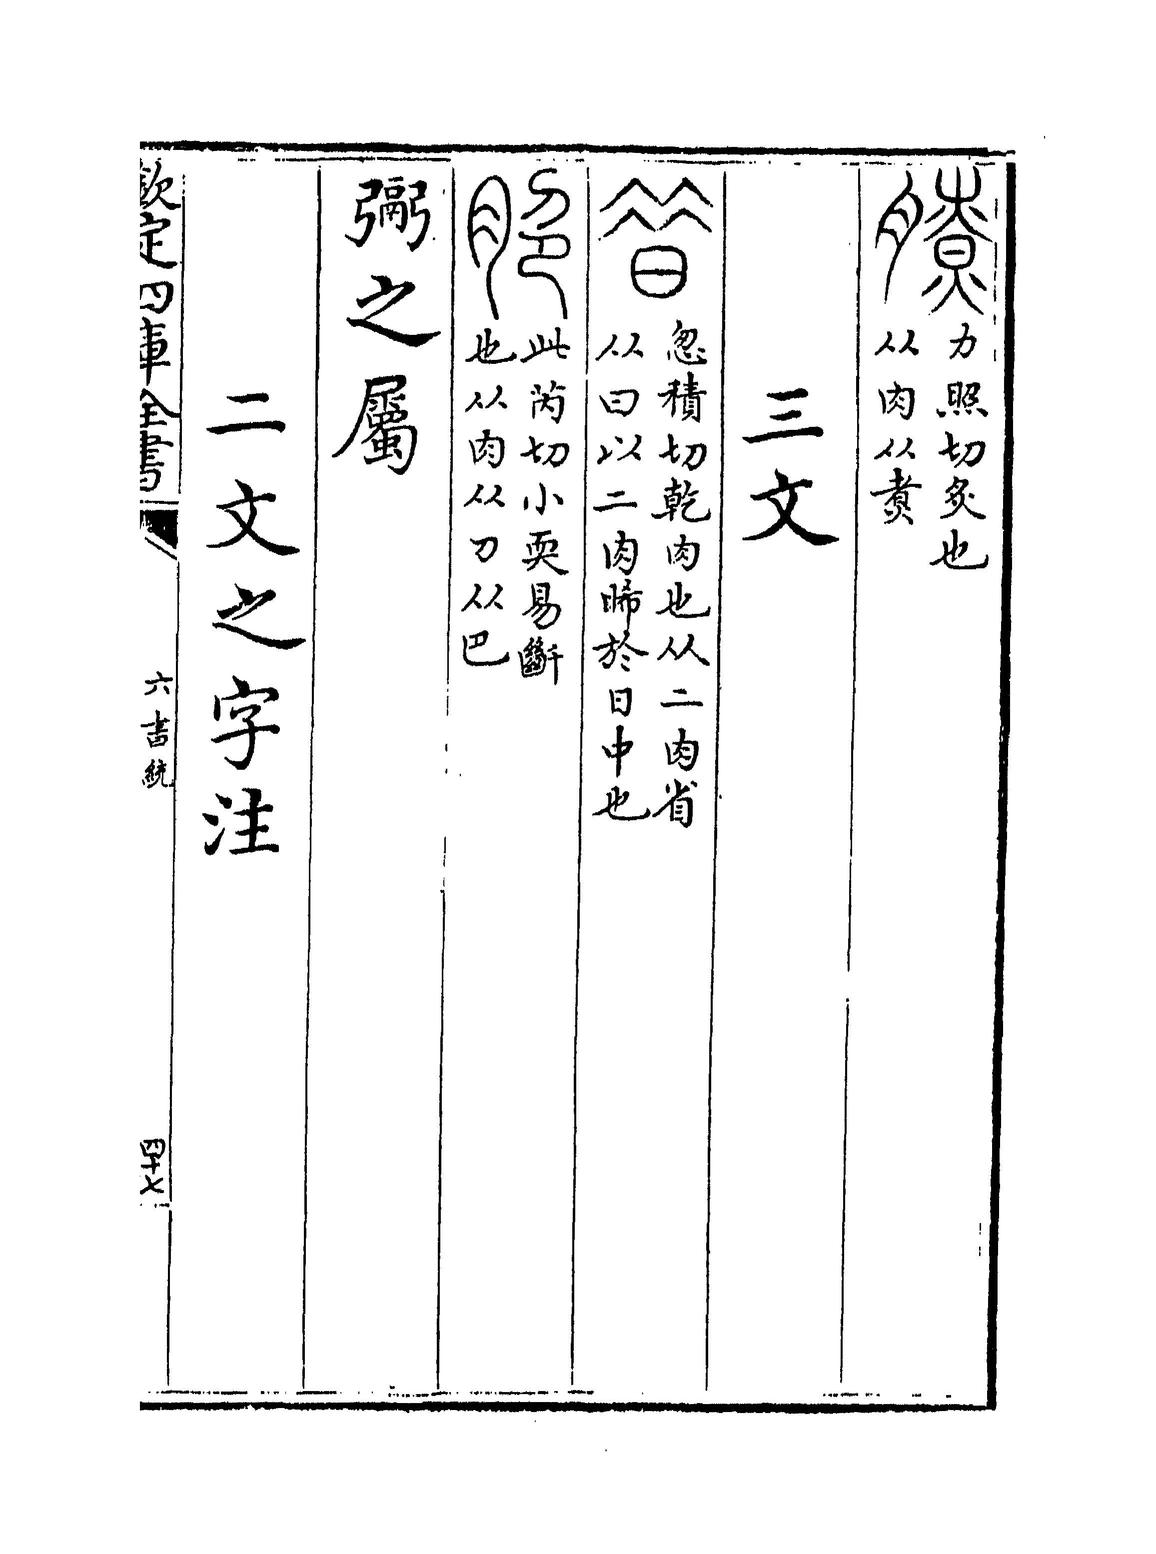 膫
力照切炙也
从肉从尞
三文
昔
怱積切乾肉也从二肉省
从日以二肉晞於日中也
脃
此芮切小耎易斷
也从肉从刀从巴
䰜之屬
二文之字注
欽定四庫全書
六書統
四十七